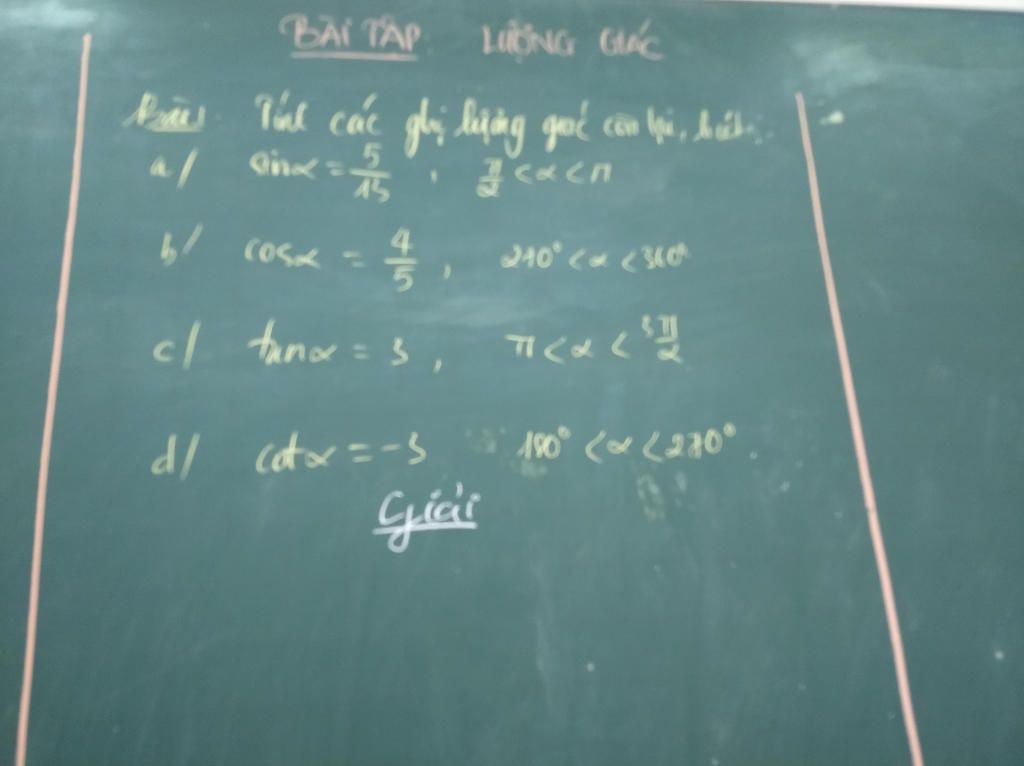 BÀI TẬP LƯỢNG GIÁC
Bài 1 Tính các giá trị lượng giác còn lại, biết:
a/ sinα = 5/13 , π/2 < α < π
b/ cosα = 4/5 , 270° < α < 360°
c/ tanα = 3 , π < α < 3π/2
d/ cotα = -3 180° < α < 270°
Giải